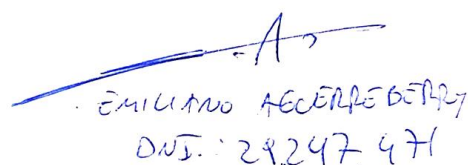 EMILIANO AGUERREBERRY
DNI.: 29.247 471